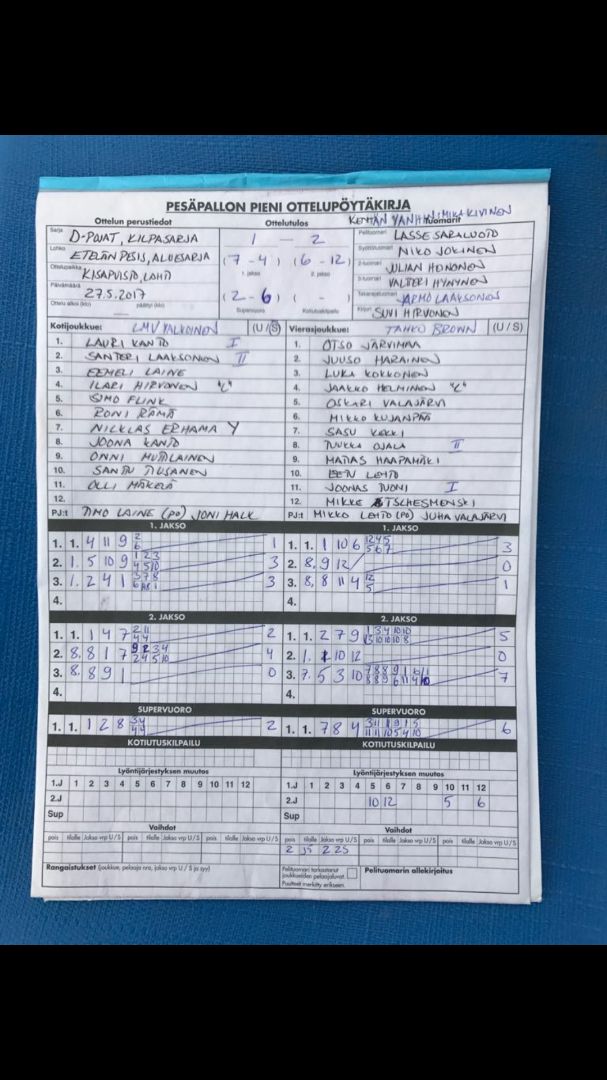 PESÄPALLON PIENI OTTELUPÖYTÄKIRJA
Ottelun perustiedot Ottelutulos KENTÄN VANHIN: MIKA KIVINEN Tuomarit
Sarja D-POJAT, KILPASARJA 1 — 2 Pelituomari LASSE SARALUOTO
Lohko ETELÄN PESIS, ALUESARJA (7 - 4) (6 - 12) Syöttötuomari NIKO JOKINEN
1. jakso 2. jakso
Ottelupaikka KISAPUISTO, LAHTI 2-tuomari JULIAN HONONEN
Päivämäärä 27.5.2017 (2 - 6) ( - ) 3-tuomari VALTTERI HYNYNEN
Takarajatuomari JARMO LAAKSONEN
Ottelu alkoi (klo) päättyi (klo) Supervuoro Kotiutuskilpailu Kirjuri SUVI HIRVONEN
Kotijoukkue: LMV VALKOINEN (U / S) Vierasjoukkue: TAHKO BROWN (U / S)
1. LAURI KANTO I 1. OTSO JÄRVIMAA
2. SANTERI LAAKSONEN II 2. JUUSO HARAINEN
3. EEMELI LAINE 3. LUKA KOKKONEN
4. ILARI HIRVONEN "C" 4. JAAKKO HELMINEN "C"
5. SIMO FLINK 5. OSKARI VALAJÄRVI
6. RONI RÄMÄ 6. MIKKO KUJANPÄÄ
7. NICKLAS ERHAMA Y 7. SASU KEKKI
8. JOONA KANTO 8. TUUKKA OJALA II
9. ONNI MUTILAINEN 9. MATIAS HAAPAMÄKI
10. SANTTU TIUSANEN 10. EETU LEHTO
11. OLLI MÄKELÄ 11. JOONAS TUONI I
12. 12. MIKKE TSCHESMENSKI
PJ:t TIMO LAINE (PO) JONI HALK PJ:t MIKKO LEHTO (PO) JUHA VALAJÄRVI
1. JAKSO 1. JAKSO
1. 1. 4 11 9 2 6 1 1. 1. 1 10 6 12 4 5 5 6 7 3
2. 1. 5 10 9 1 2 3 4 5 10 3 2. 8, 9 12 0
3. 1. 2 4 1 3 7 8 3 3. 8, 8 11 4 12 5 1
4. 4.
2. JAKSO 2. JAKSO
1. 1. 1 4 7 2 11 4 4 2 1. 1. 2 7 9 1 3 4 10 10 5
2. 8. 8 1 7 9 2 3 4 2 4 5 10 4 2. 1. 1 10 12 0
3. 8. 8 9 1 0 3. 7. 5 3 10 7 8 8 9 1 7
4. 4.
SUPERVUORO SUPERVUORO
1. 1. 1 2 8 3 4 4 4 2 1. 1. 7 8 4 3 11 1 9 1 5 11 11 10 5 4 10 6
KOTIUTUSKILPAILU KOTIUTUSKILPAILU
Lyöntijärjestyksen muutos Lyöntijärjestyksen muutos
1.J 1 2 3 4 5 6 7 8 9 10 11 12 1.J 1 2 3 4 5 6 7 8 9 10 11 12
2.J 2.J 10 12 5 6
Sup Sup
Vaihdot Vaihdot
pois tilalle Jakso vrp U / S pois tilalle Jakso vrp U / S pois tilalle Jakso vrp U / S pois tilalle Jakso vrp U / S
Rangaistukset (joukkue, pelaaja nro, jakso vrp U / S ja syy) Pelituomari tarkastanut joukkueiden pelaajaluvat. Pelituomarin allekirjoitus
Puutteet merkitty erikseen.